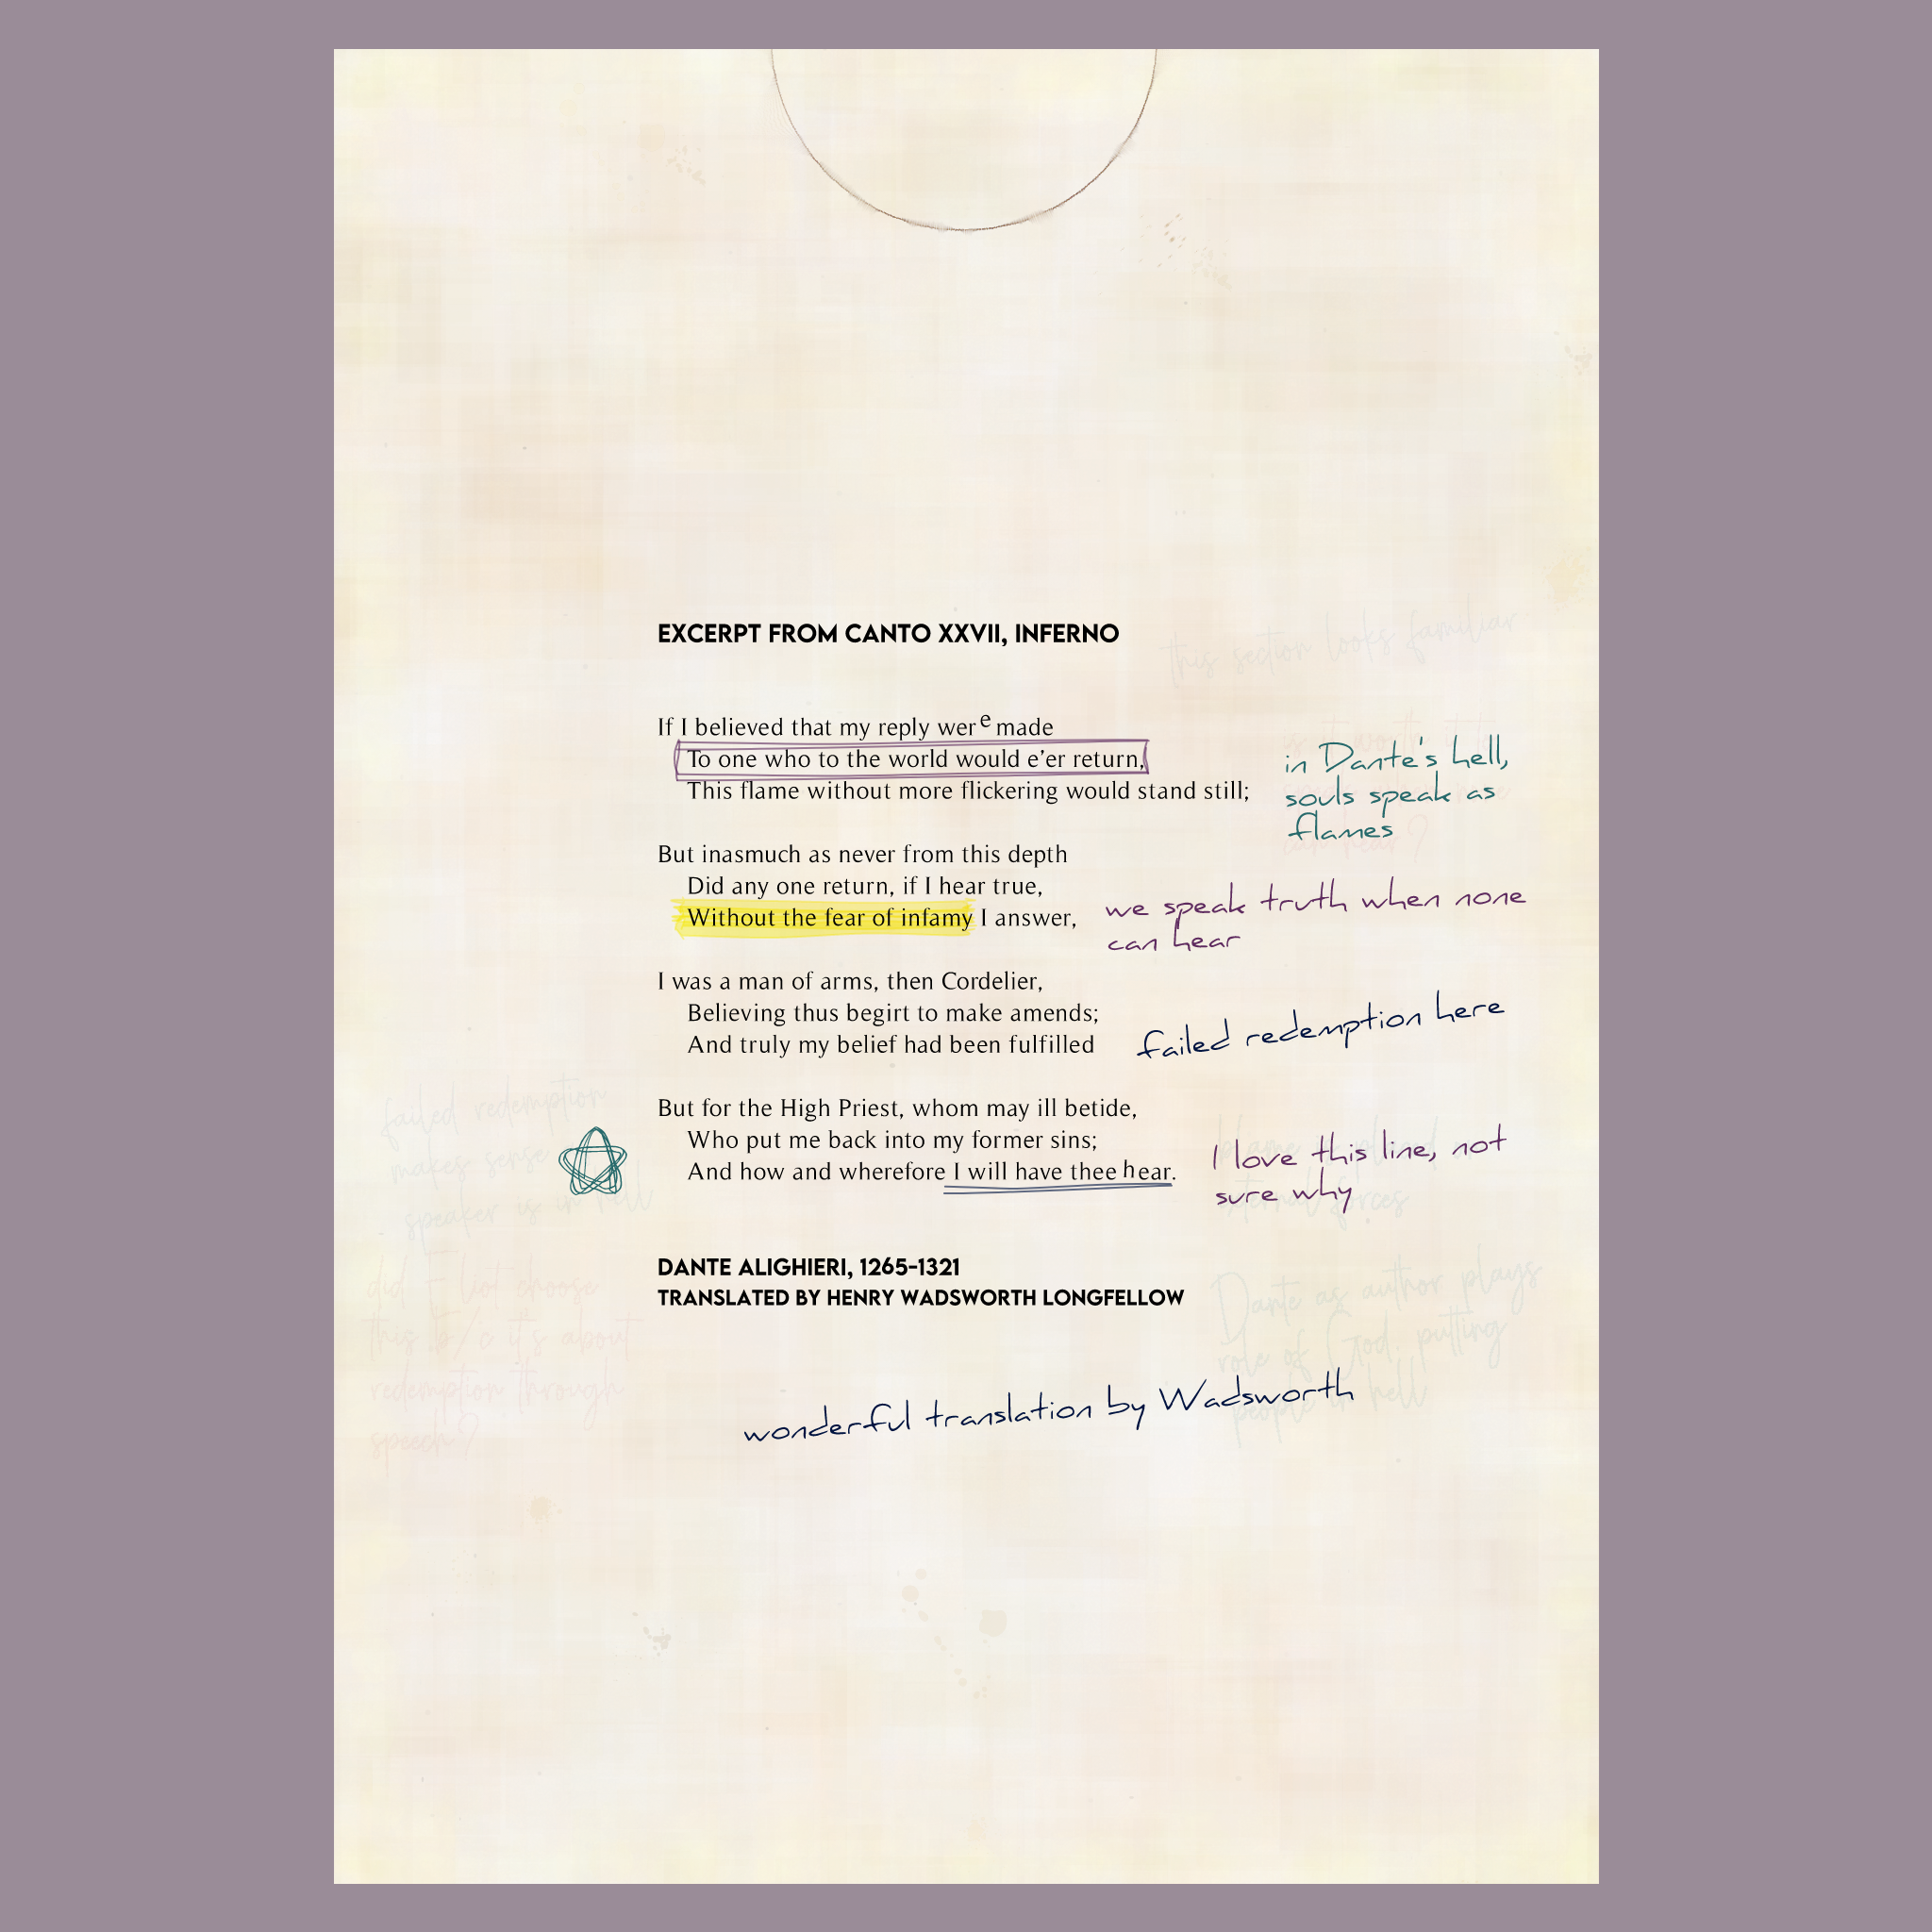 EXCERPT FROM CANTO XXVII, INFERNO
this section looks familiar
If I believed that my reply were made
To one who to the world would e'er return,
This flame without more flickering would stand still;
in Dante's hell,
souls speak as
flames
But inasmuch as never from this depth
Did any one return, if I hear true,
Without the fear of infamy I answer,
we speak truth when none
can hear
I was a man of arms, then Cordelier,
Believing thus begirt to make amends;
And truly my belief had been fulfilled
failed redemption here
But for the High Priest, whom may ill betide,
Who put me back into my former sins;
And how and wherefore I will have thee hear.
failed redemption
makes sense
speaker is in hell
I love this line, not
sure why
did Eliot choose
this b/c it's about
redemption through
speech?
DANTE ALIGHIERI, 1265-1321
TRANSLATED BY HENRY WADSWORTH LONGFELLOW
Dante as author plays
role of God, putting
people in hell
wonderful translation by Wadsworth